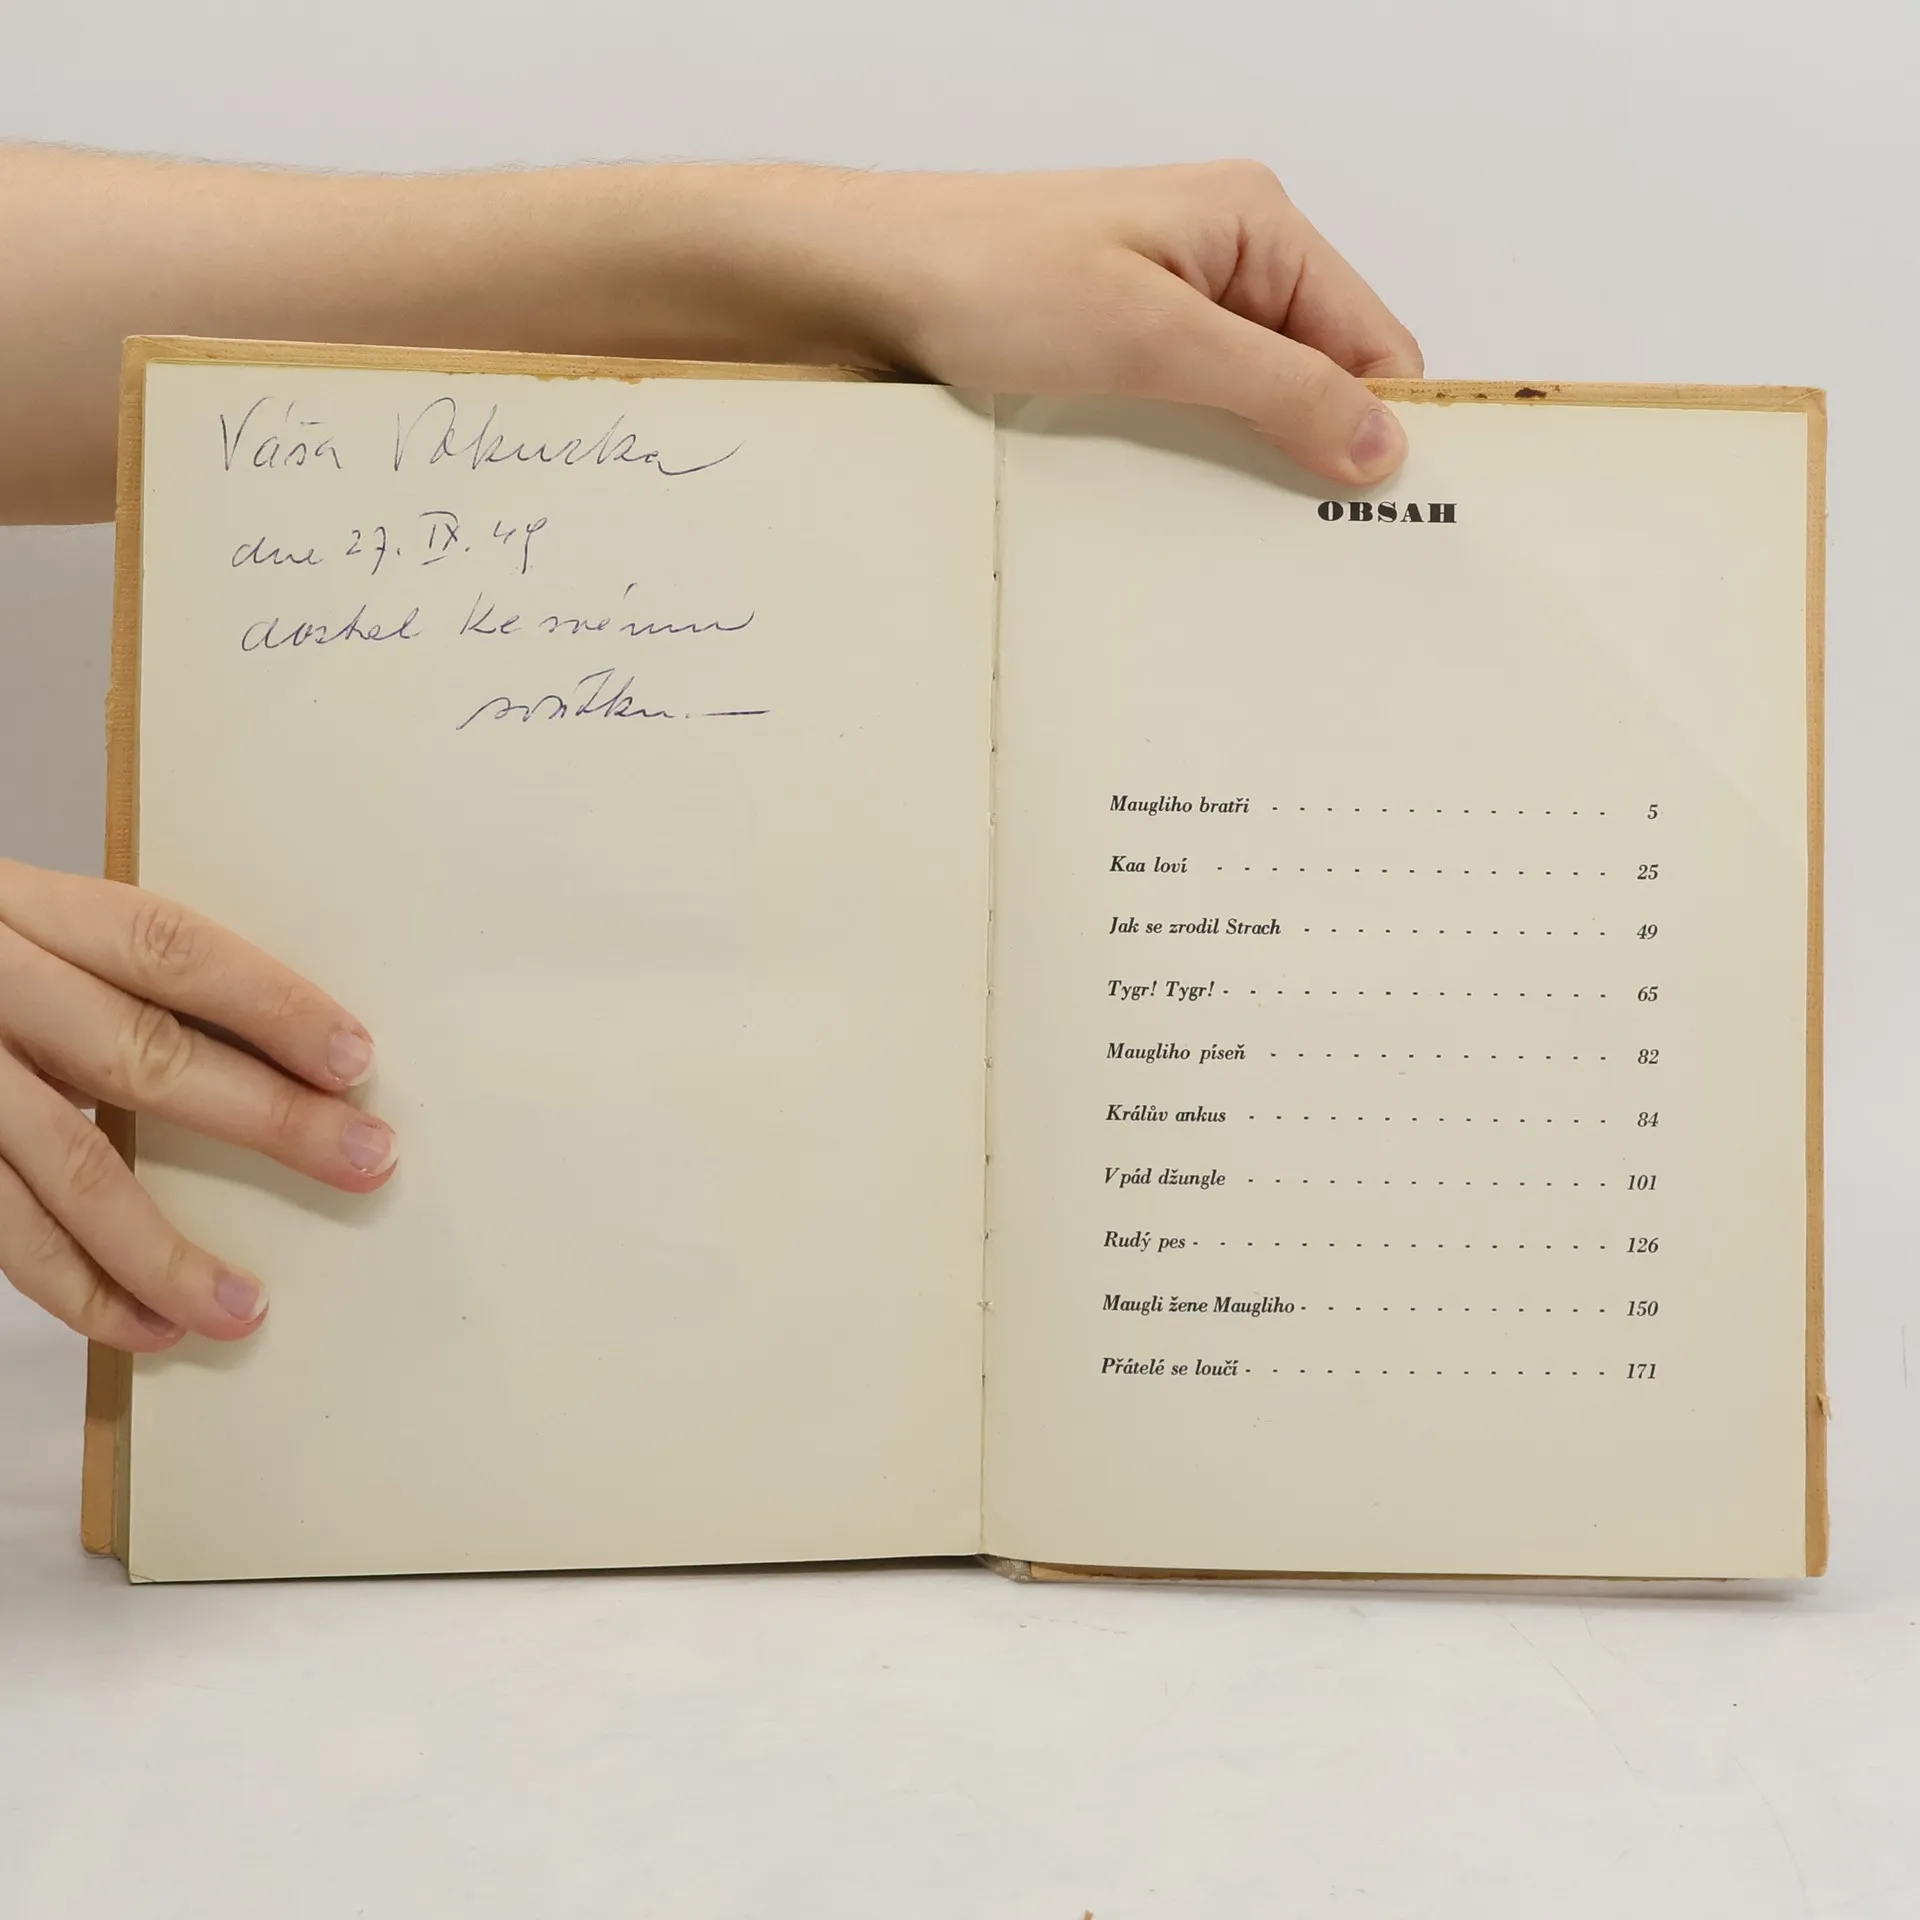 Váša Vokurka
dne 27. IX. 49
dostal ke svému
svátku. —
OBSAH
Maugliho bratři - - - - - - - - - - - - - 5
Kaa loví - - - - - - - - - - - - - - - 25
Jak se zrodil Strach - - - - - - - - - - - - 49
Tygr! Tygr! - - - - - - - - - - - - - - - 65
Maugliho píseň - - - - - - - - - - - - - 82
Králův ankus - - - - - - - - - - - - - - 84
Vpád džungle - - - - - - - - - - - - - - 101
Rudý pes - - - - - - - - - - - - - - - - 126
Maugli žene Maugliho - - - - - - - - - - - - 150
Přátelé se loučí - - - - - - - - - - - - - - 171